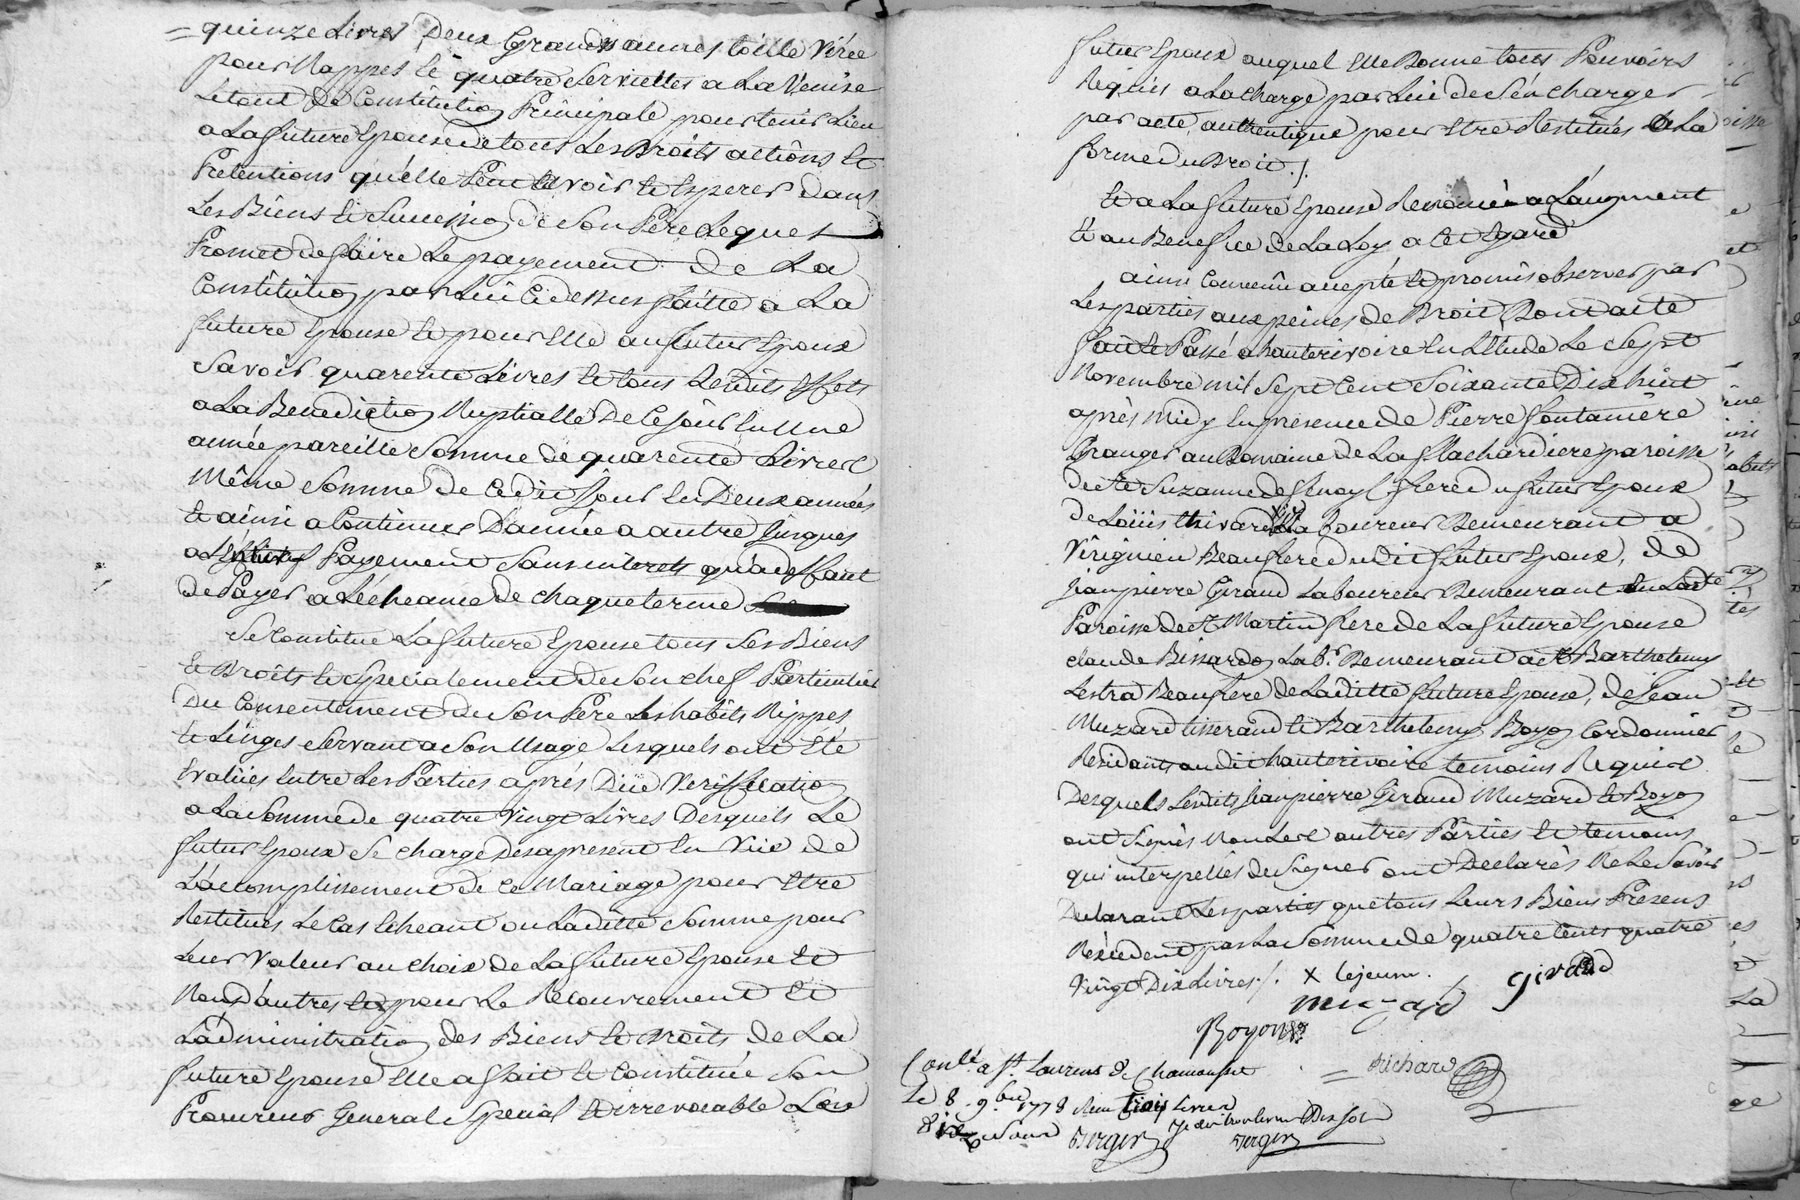 = quinze Livres, Deux Grandes aunes toille Virée
pour Nappes et quatre Serviettes a La Venise
Le tout De Constitution Principale pour tenir Lieu
a La future Epouse de tous Les Droits actions Et
Pretentions qu'elle Peut avoir Et Esperer dans
Les Biens Et Succession de Son Pere Lequel
Promet de faire Le payement de La
Constitution par Lui Cidessus faitte a La
future Epouse Et pour Elle au futur Epoux
Savoir quarente Livres Et tous Lesdits Effets
a La Benediction Nuptialle De Ce jour En Une
année pareille Somme de quarente Livres
Même Somme de Cedit jour En Deux années
Et ainsi a Continuer D'année a autre Jusques
a L'entier Payement Sans interets qu'a deffaut
de Payer a L'écheance de chaque terme
Se Constitue La future Epouse tous Ses Biens
Et Droits Et Specialement de Son chef Particulier
Du Consentement de Son Pere Les habits Nippes
Et Linges Servant a Son Usage Lesquels ont Eté
Evalüés Entre Les Parties aprés Düe Veriffication
a La Somme de quatre Vingt Livres Desquels Le
futur Epoux Se charge Desapresent En Vüe de
L'accomplissement de Ce Mariage pour Etre
Restitués Le Cas Echeant ou Laditte Somme pour
Leur Valeur au choix de La future Epouse Et
Non d'autres Et pour Le Recouvrement Et
L'administration des Biens Et Droits de La
future Epouse Elle a fait Et Constitué Son
Procureur General Special Et irrevocable Led
futur Epoux auquel Elle Donne tous Pouvoirs
Requis a La charge par Lui de S'en charger
par acte authentique pour Etre Restitués a La
forme du Droit ./.
Et a La future Epouse Renoncé a L'augment
Et au Benefice de La Loy a Cet Egard
ainsi Convenû accepté Et promis observer par
Les parties aux peines de Droit, Dont acte
fait Et Passé a hauterivoire En L'Etude Le Sept
Novembre mil Sept Cent Soixante Dix huit
aprés Midy En presence de Pierre fontaniere
Granger au Domaine de La flachardiere paroisse
de Ste Suzanne de frere du futur Epoux
de Loüis thivard Laboureur Demeurant a
Virignieu Beaufrere dudit futur Epoux, de
Jean pierre Giraud Laboureur Demeurant En Ladte
Paroisse de St Martin frere de La future Epouse
Claude Bissardon Labr. Demeurant a St Barthelemy
Lestra Beaufrere de Laditte future Epouse, de jean
Muzard tisserand Et Barthelemy Boyon Cordonnier
Residants audit hauterivoire temoins Requis
Desquels Lesdits Jean pierre Giraud Muzard Et Boyon
ont Signés Non Les autres Parties Et temoins
qui interpellés de Signer ont Declarés Ne Le Savoir
Declarant Les parties que tous Leurs Biens Présens
N'excedent pas La Somme de quatre Cents quatre
Vingt Dix Livres ./. X Lejeune. girard
muzard
Boyon
Conlé. a St. Laurent de Chamousset = Richard
Le 8 9bre 1778 Reçu trois Livres
Dix Sols
Berger Berger